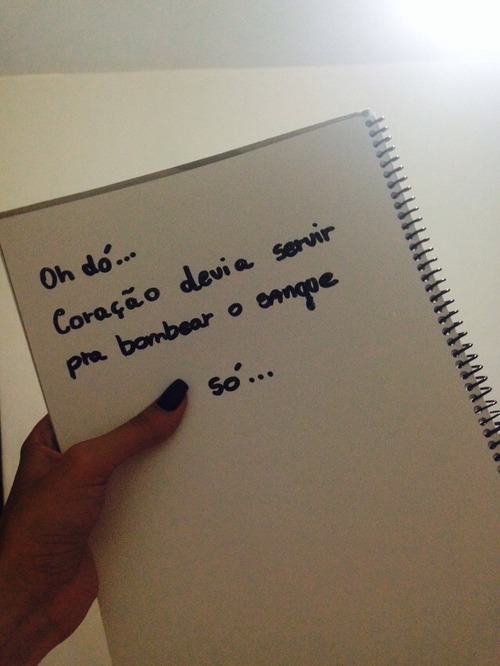 Oh dó...
Coração devia servir
pra bombear o sangue
só...